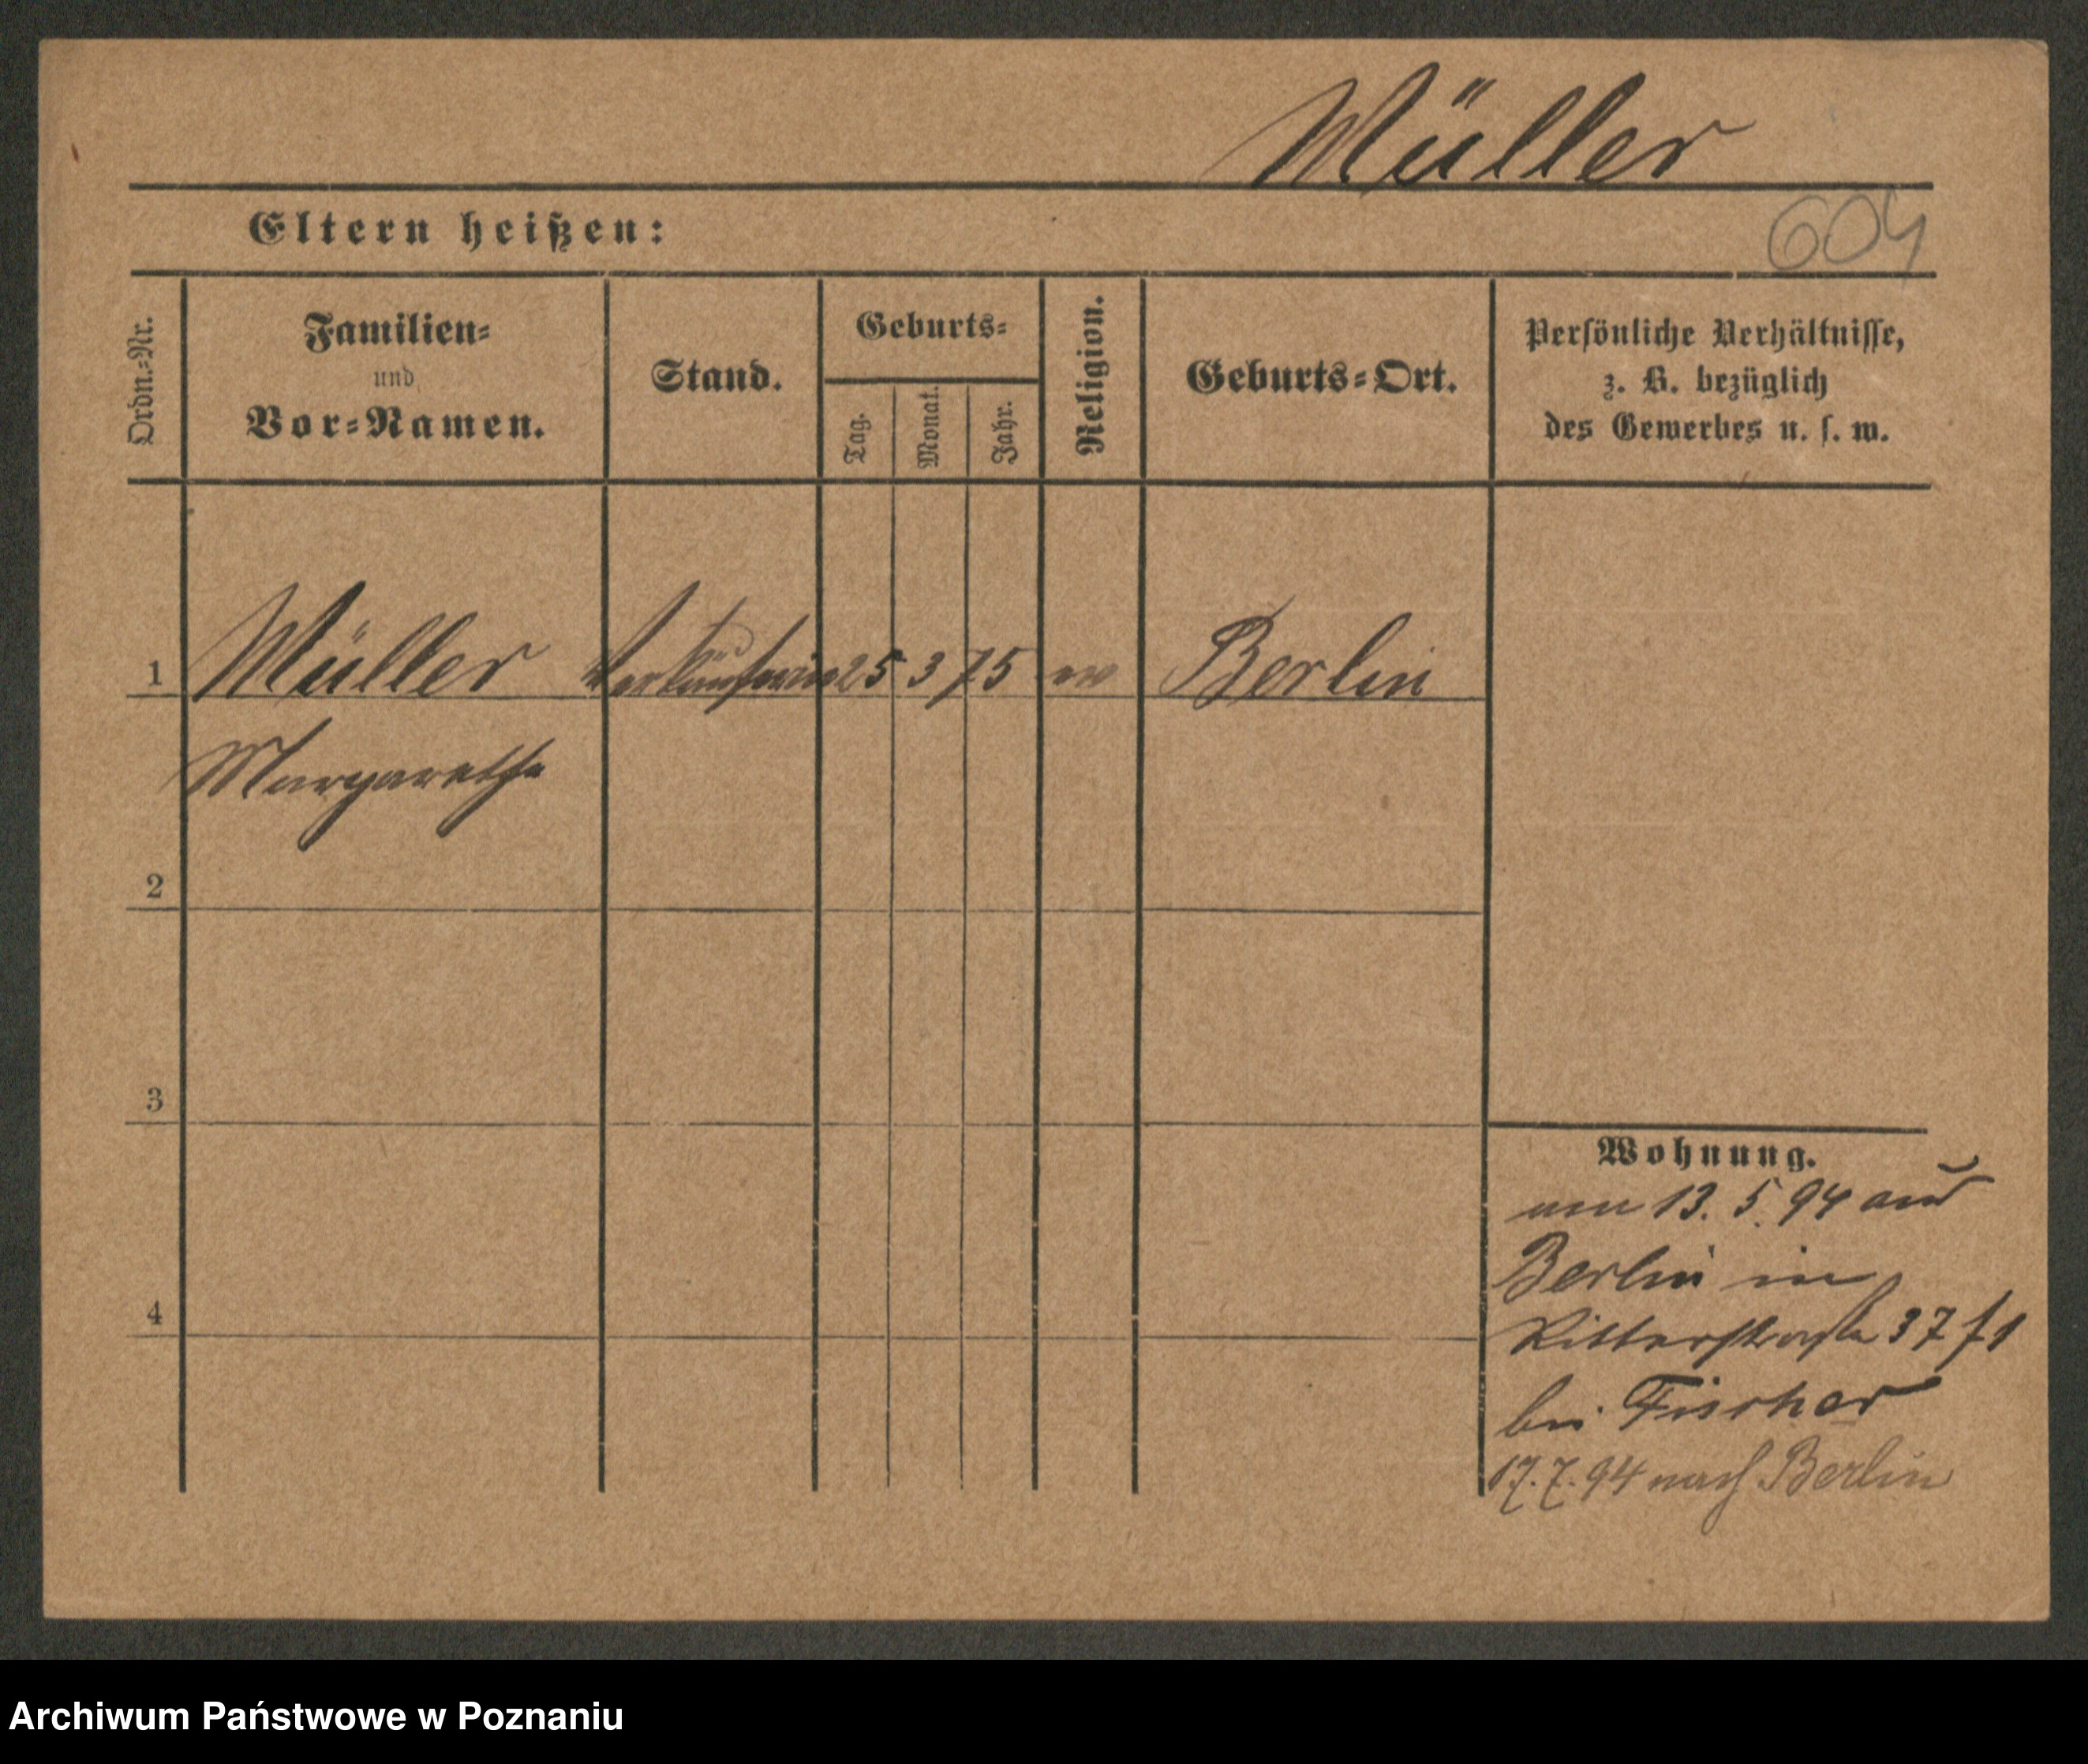 Müller
604
Eltern heißen:
Ordn.=Nr.
Familien=
und
Vor=Namen.
Stand.
Geburts=
Tag.
Monat.
Jahr.
Religion.
Geburts=Ort.
Persönliche Verhältnisse,
z. B. bezüglich
des Gewerbes u. s. w.
1 Müller Verkäuferin 25 3 75 ev Berlin
Margarethe
2
3
4
Wohnung.
am 13. 5. 94 aus
Berlin in
Ritterstraße 37
bei Fischer
17. 7. 94 nach Berlin
Archiwum Państwowe w Poznaniu